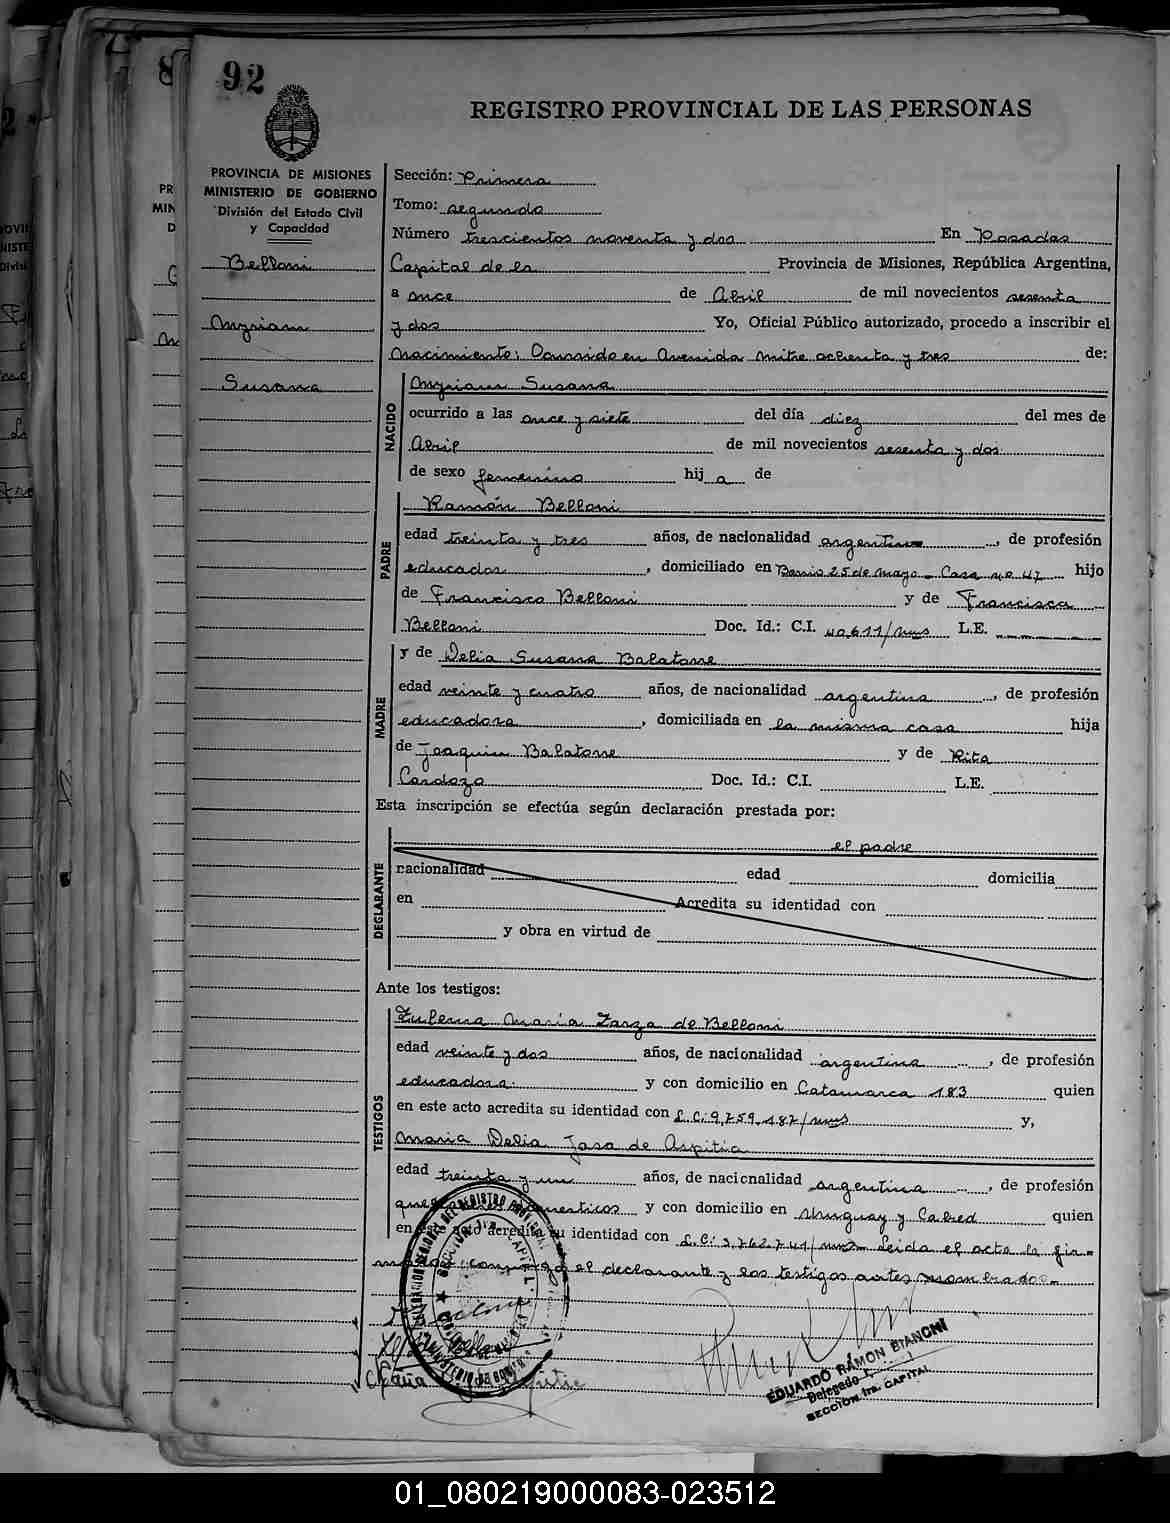 92
REGISTRO PROVINCIAL DE LAS PERSONAS
PROVINCIA DE MISIONES
MINISTERIO DE GOBIERNO
División del Estado Civil
y Capacidad
Belloni
Myriam
Susana
Sección: Primera
Tomo: segundo
Número trescientos noventa y dos En Posadas
Capital de la Provincia de Misiones, República Argentina,
a once de Abril de mil novecientos sesenta
y dos Yo, Oficial Público autorizado, procedo a inscribir el
Nacimiento: Ocurrido en Avenida Mitre ochenta y tres de:
NACIDO
Myriam Susana
ocurrido a las once y siete del día diez del mes de
Abril de mil novecientos sesenta y dos
de sexo femenino hij a de
PADRE
Ramón Belloni
edad treinta y tres años, de nacionalidad argentino, de profesión
educador, domiciliado en Barrio 25 de Mayo - Casa nº 47 hijo
de Francisco Belloni y de Francisca
Belloni Doc. Id.: C.I. 40.611/mns L.E.
MADRE
y de Delia Susana Balatorre
edad veinte y cuatro años, de nacionalidad argentina, de profesión
educadora, domiciliada en la misma casa hija
de Joaquin Balatorre y de Rita
Cardozo Doc. Id.: C.I. L.E.
Esta inscripción se efectúa según declaración prestada por:
DECLARANTE
el padre
nacionalidad edad domicilia
en Acredita su identidad con
y obra en virtud de
Ante los testigos:
TESTIGOS
Zulema María Zarza de Belloni
edad veinte y dos años, de nacionalidad argentina, de profesión
educadora y con domicilio en Catamarca 183 quien
en este acto acredita su identidad con L.C. 9.759.187/mns y,
María Delia Jasa de Aspitia
edad treinta y un años, de nacionalidad argentina, de profesión
domesticos y con domicilio en Uruguay y Cabred quien
en este acto acredita su identidad con L.C. 3.762.741/mns Leida el acta la fir-
man conmigo el declarante y los testigos antes nombrados.-
EDUARDO RAMON BIANCHI
Delegado
SECCION 1ra. CAPITAL
01_080219000083-023512